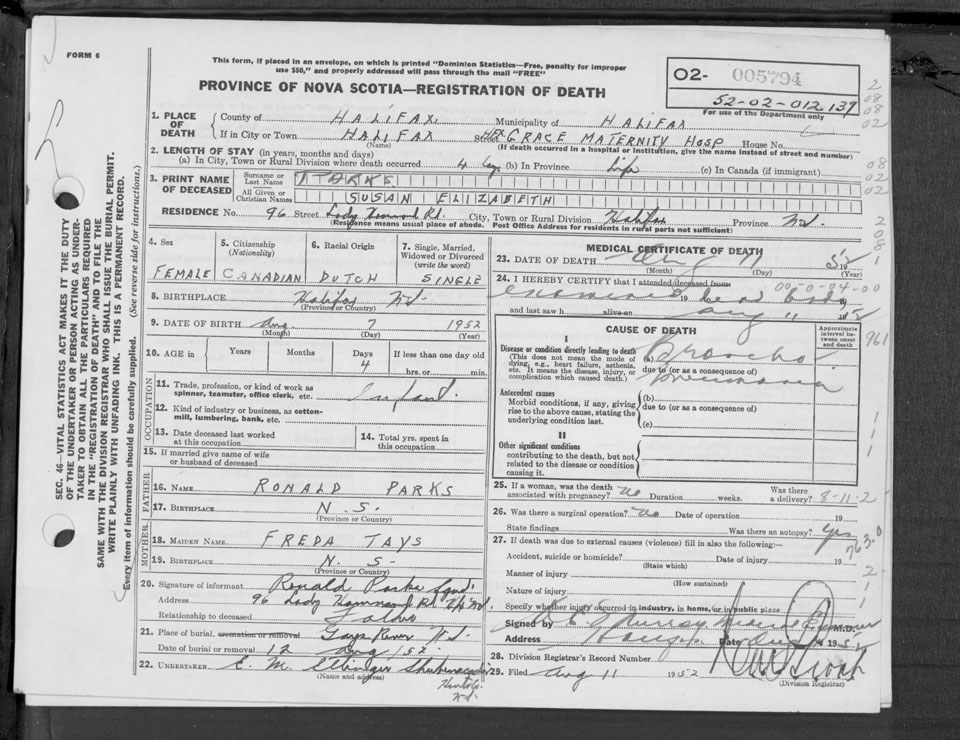 FORM 6
This form, if placed in an envelope, on which is printed "Dominion Statistics—Free, penalty for improper
use $50," and properly addressed will pass through the mail "FREE"
PROVINCE OF NOVA SCOTIA—REGISTRATION OF DEATH
02- 005794
52-02-012137
For use of the Department only
1. PLACE OF DEATH
County of HALIFAX. Municipality of HALIFAX
If in City or Town HALIFAX Street GRACE MATERNITY HOSP House No.
(Name) (If death occurred in a hospital or institution, give the name instead of street and number)
2. LENGTH OF STAY (in years, months and days)
(a) In City, Town or Rural Division where death occurred 4 (b) In Province life (c) In Canada (if immigrant)
3. PRINT NAME OF DECEASED
Surname or Last Name PARKS
All Given or Christian Names SUSAN ELIZABETH
RESIDENCE No. 96 Street Lady Hammond Rd. City, Town or Rural Division Halifax Province N.S.
(Residence means usual place of abode. Post Office Address for residents in rural parts not sufficient)
4. Sex FEMALE
5. Citizenship (Nationality) CANADIAN
6. Racial Origin DUTCH
7. Single, Married, Widowed or Divorced (write the word) SINGLE
8. BIRTHPLACE Halifax N.S.
(Province or Country)
9. DATE OF BIRTH Aug. 7 1952
(Month) (Day) (Year)
10. AGE in Years Months Days 4 If less than one day old
hrs. or min.
OCCUPATION
11. Trade, profession, or kind of work as
spinner, teamster, office clerk, etc. Infant.
12. Kind of industry or business, as cotton-
mill, lumbering, bank, etc.
13. Date deceased last worked
at this occupation
14. Total yrs. spent in
this occupation
15. If married give name of wife
or husband of deceased
FATHER
16. NAME RONALD PARKS
17. BIRTHPLACE N.S.
(Province or Country)
MOTHER
18. MAIDEN NAME FREDA TAYS
19. BIRTHPLACE N.S.
(Province or Country)
20. Signature of informant Ronald Parks
Address 96 Lady Hammond Rd.
Relationship to deceased Father
21. Place of burial, cremation or removal Gays River N.S.
Date of burial or removal 12 Aug / 52
22. UNDERTAKER E. M. Ettinger Shubenacadie
(Name and address)
Hants Co.
N.S.
MEDICAL CERTIFICATE OF DEATH
23. DATE OF DEATH Aug 11 1952
(Month) (Day) (Year)
24. I HEREBY CERTIFY that I attended deceased from
00-0-04-00
examined 19 dead body
and last saw h alive on Aug 11 1952
CAUSE OF DEATH
Approximate interval between onset and death
I
Disease or condition directly leading to death
(This does not mean the mode of
dying, e.g., heart failure, asthenia,
etc. It means the disease, injury, or
complication which caused death.)
(a) Broncho
due to (or as a consequence of)
pneumonia
Antecedent causes
Morbid conditions, if any, giving
rise to the above cause, stating the
underlying condition last.
(b)
due to (or as a consequence of)
(c)
II
Other significant conditions
contributing to the death, but not
related to the disease or condition
causing it.
25. If a woman, was the death
associated with pregnancy? No Duration weeks. Was there
a delivery? 8-11-2
26. Was there a surgical operation? No Date of operation 19
State findings Was there an autopsy? Yes
763.0
27. If death was due to external causes (violence) fill in also the following:—
Accident, suicide or homicide? Date of injury 19
(State which)
Manner of injury
(How sustained)
Nature of injury
Specify whether injury occurred in industry, in home, or in public place
Signed by Murray M.D.
Address Date Aug 11 1952
28. Division Registrar's Record Number
29. Filed Aug 11 1952
(Division Registrar)
SEC. 46—VITAL STATISTICS ACT MAKES IT THE DUTY
OF THE UNDERTAKER OR PERSON ACTING AS UNDER-
TAKER TO OBTAIN ALL THE PARTICULARS REQUIRED
IN THE "REGISTRATION OF DEATH" AND TO FILE THE
SAME WITH THE DIVISION REGISTRAR WHO SHALL ISSUE THE BURIAL PERMIT.
WRITE PLAINLY WITH UNFADING INK. THIS IS A PERMANENT RECORD.
Every item of information should be carefully supplied. (See reverse side for instructions.)
2
08
08
02
08
02
02
2
08
1
961
1
1
1
2
1
1